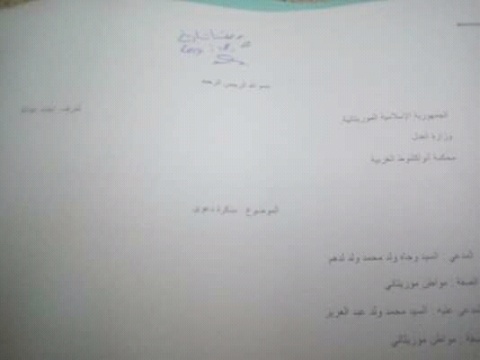 بسم الله الرحمن الرحيم
الجمهورية الإسلامية الموريتانية
شرف إخاء عدالة
وزارة العدل
محكمة انواكشوط الغربية
الموضوع : مذكرة دعوى
المدعي : السيد وجاه ولد محمد ولد لدهم
الصفة : مواطن موريتاني
المدعى عليه : السيد محمد ولد عبد العزيز
الصفة : مواطن موريتاني